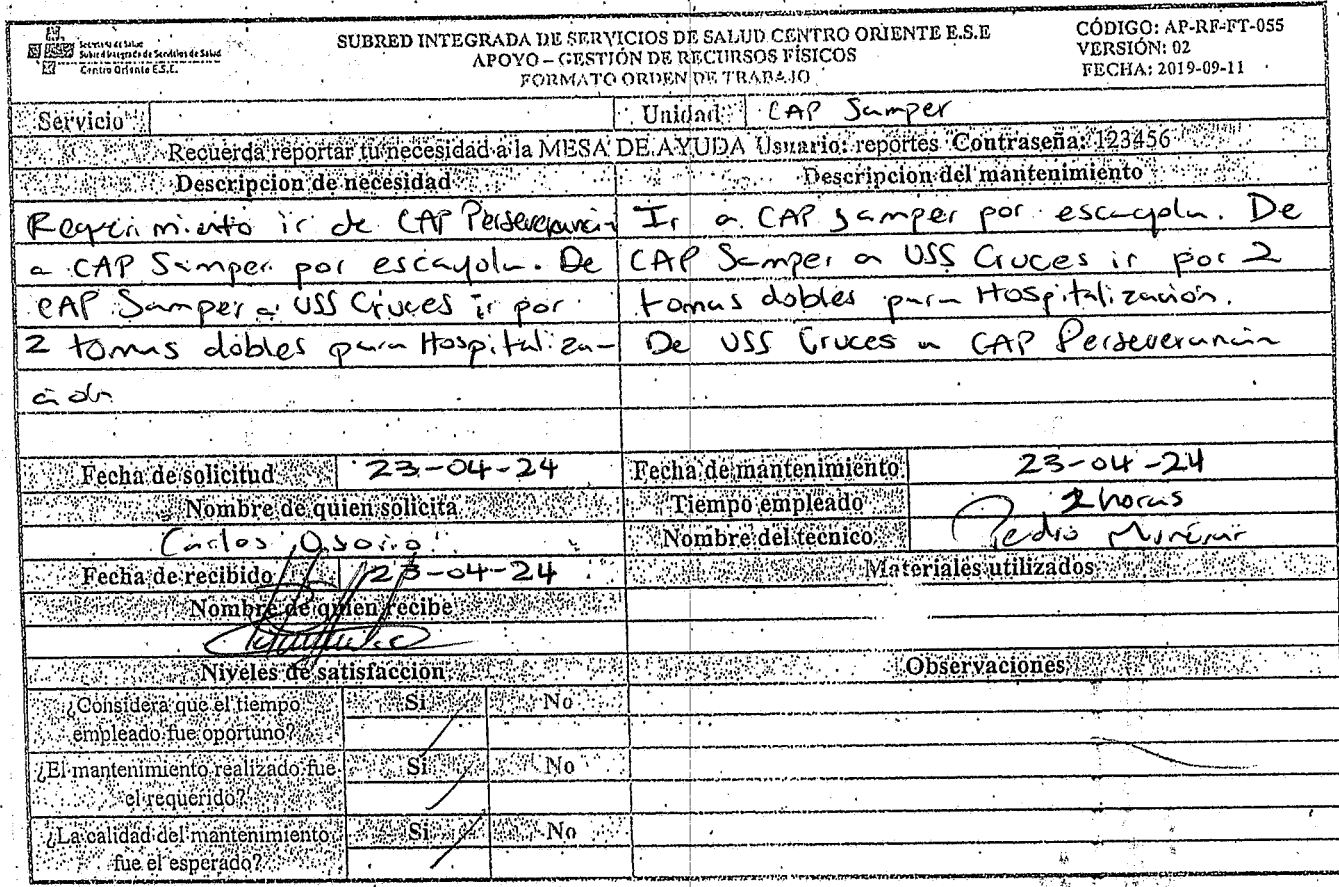 Secretaría de Salud
Subred Integrada de Servicios de Salud
Centro Oriente E.S.E.
SUBRED INTEGRADA DE SERVICIOS DE SALUD CENTRO ORIENTE E.S.E
APOYO – GESTIÓN DE RECURSOS FÍSICOS
FORMATO ORDEN DE TRABAJO
CÓDIGO: AP-RF-FT-055
VERSIÓN: 02
FECHA: 2019-09-11
Servicio
Unidad CAP Samper
Recuerda reportar tu necesidad a la MESA DE AYUDA Usuario: reportes Contraseña: 123456
Descripcion de necesidad
Requerimiento ir de CAP Perseverancia
a CAP Samper por escayola. De
CAP Samper a USS Cruces ir por
2 tomas dobles para Hospitaliza-
ción
Descripcion del mantenimiento
Ir a CAP Samper por escayola. De
CAP Samper a USS Cruces ir por 2
tomas dobles para Hospitalización.
De USS Cruces a CAP Perseverancia
Fecha de solicitud 23-04-24
Nombre de quien solicita
Carlos Osorio
Fecha de recibido 23-04-24
Nombre de quien recibe
Fecha de mantenimiento 23-04-24
Tiempo empleado 2 horas
Nombre del técnico Pedro
Materiales utilizados
Niveles de satisfaccion
¿Considera que el tiempo
empleado fue oportuno?
Si No
¿El mantenimiento realizado fue
el requerido?
Si No
¿La calidad del mantenimiento
fue el esperado?
Si No
Observaciones